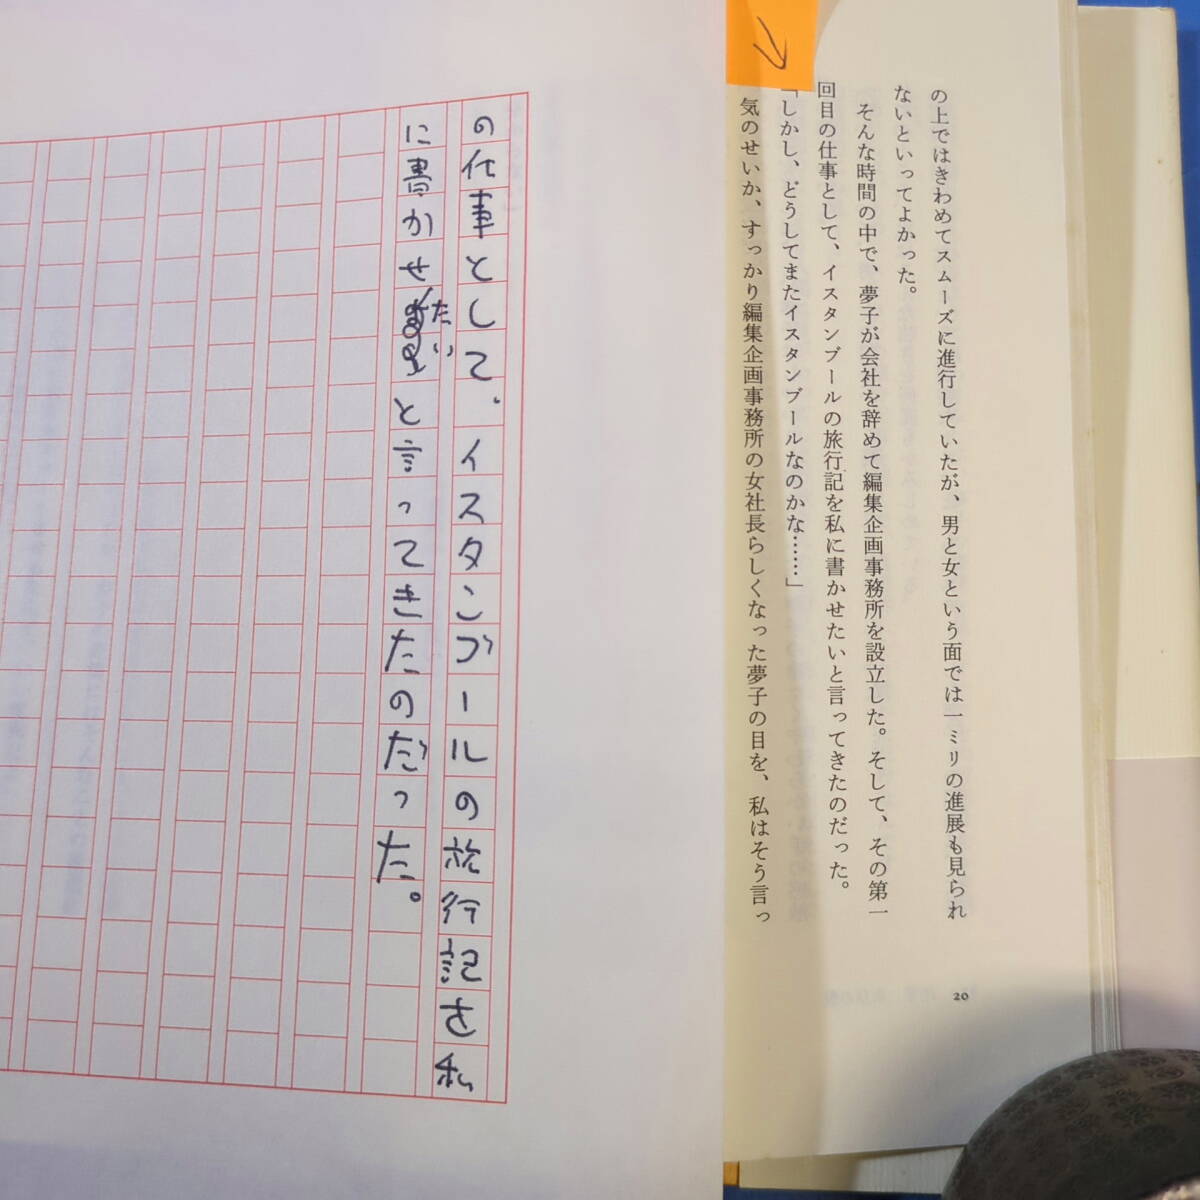 の上ではきわめてスムーズに進行していたが、男と女という面では一ミリの進展も見られ
ないといってよかった。
そんな時間の中で、夢子が会社を辞めて編集企画事務所を設立した。そして、その第一
回目の仕事として、イスタンブールの旅行記を私に書かせたいと言ってきたのだった。
「しかし、どうしてまたイスタンブールなのかな……」
気のせいか、すっかり編集企画事務所の女社長らしくなった夢子の目を、私はそう言っ
20
の仕事として、イスタンブールの旅行記を私
に書かせたいと言ってきたのだった。